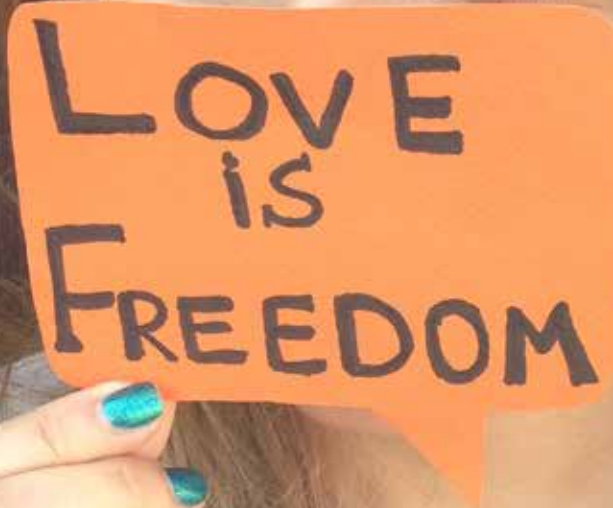 LOVE
iS
FREEDOM